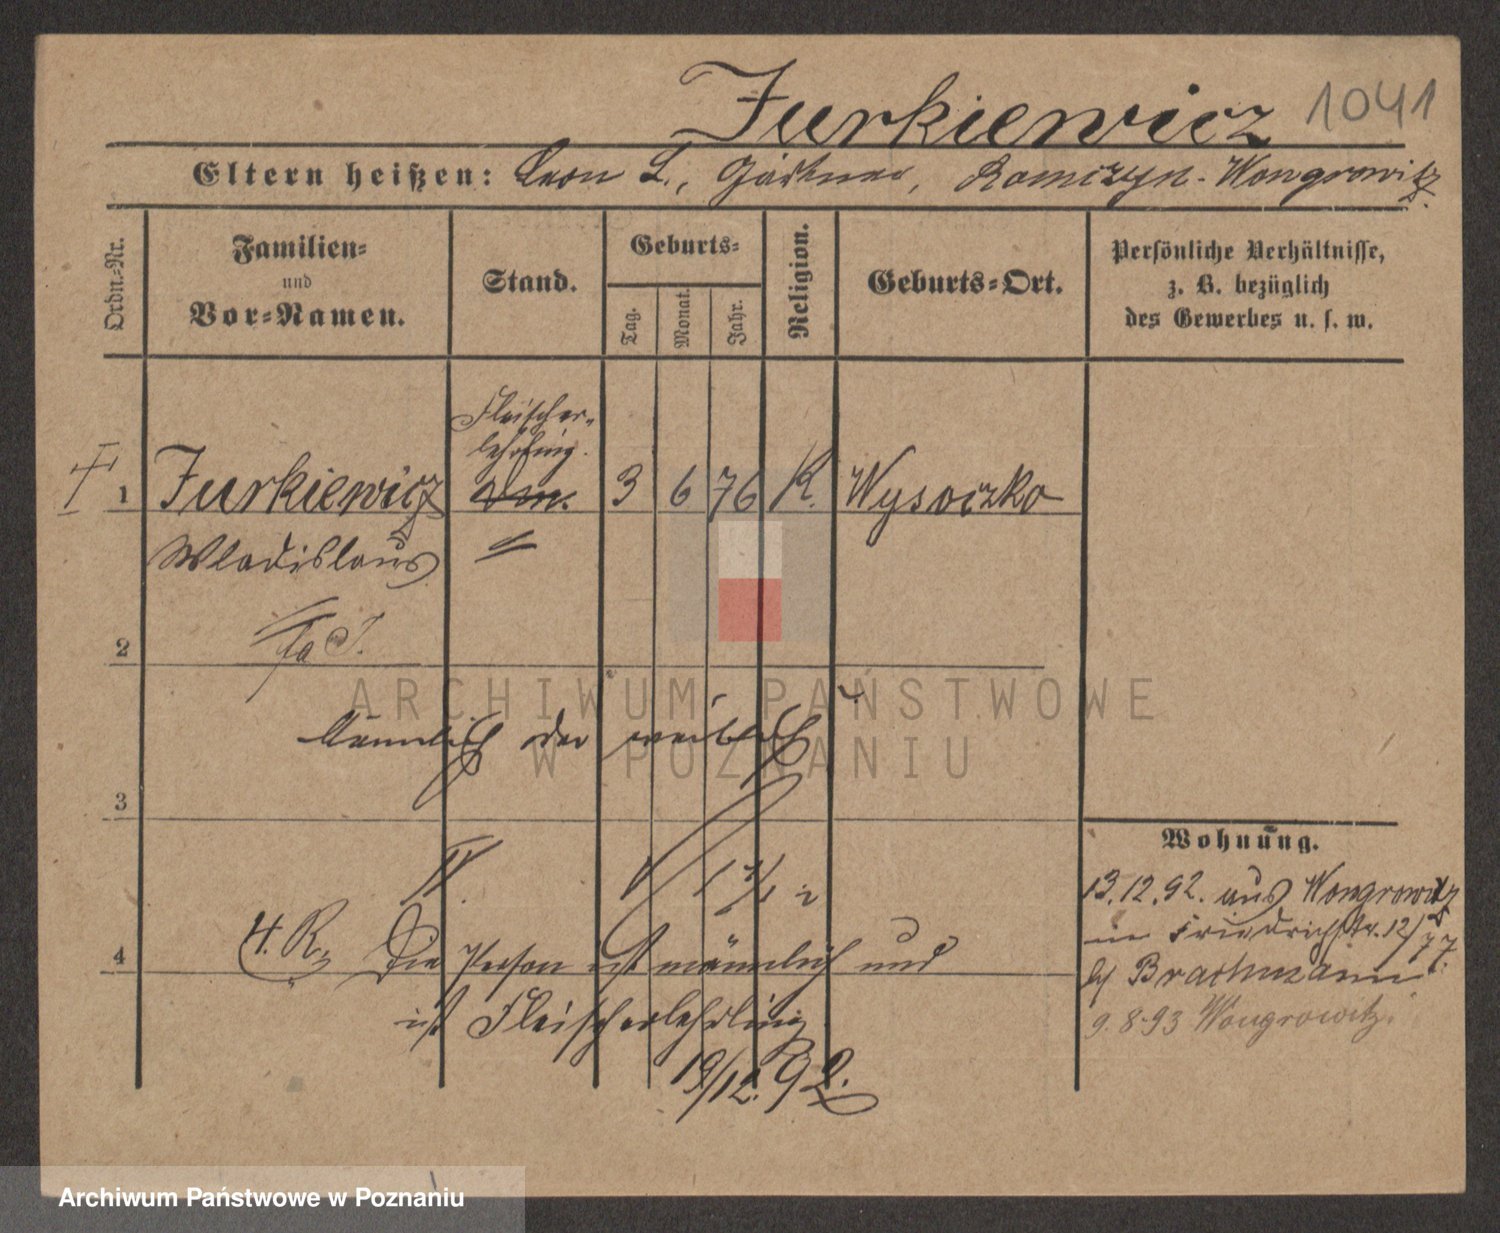 Jurkiewicz 1041
Eltern heißen: Leon L., Gärtner, Romczyn-Wongrowitz.
Ordn.-Nr.
Familien-
und
Vor-Namen.
Stand.
Geburts-
Tag.
Monat.
Jahr.
Religion.
Geburts-Ort.
Persönliche Verhältnisse,
z. B. bezüglich
des Gewerbes u. s. w.
Fleischer-
lehrling.
1 Jurkiewicz 3 6 76 K. Wysoczko
Wladislaus
2
männlich oder weiblich
3
IV.
4 Die Person ist männlich und
ist Fleischerlehrling
19/12. 92.
Wohnung.
13.12.92. aus Wongrowitz
in Friedrichstr. 12/
bei Brachmann
9.8.93 Wongrowitz.
ARCHIWUM PAŃSTWOWE
W POZNANIU
Archiwum Państwowe w Poznaniu